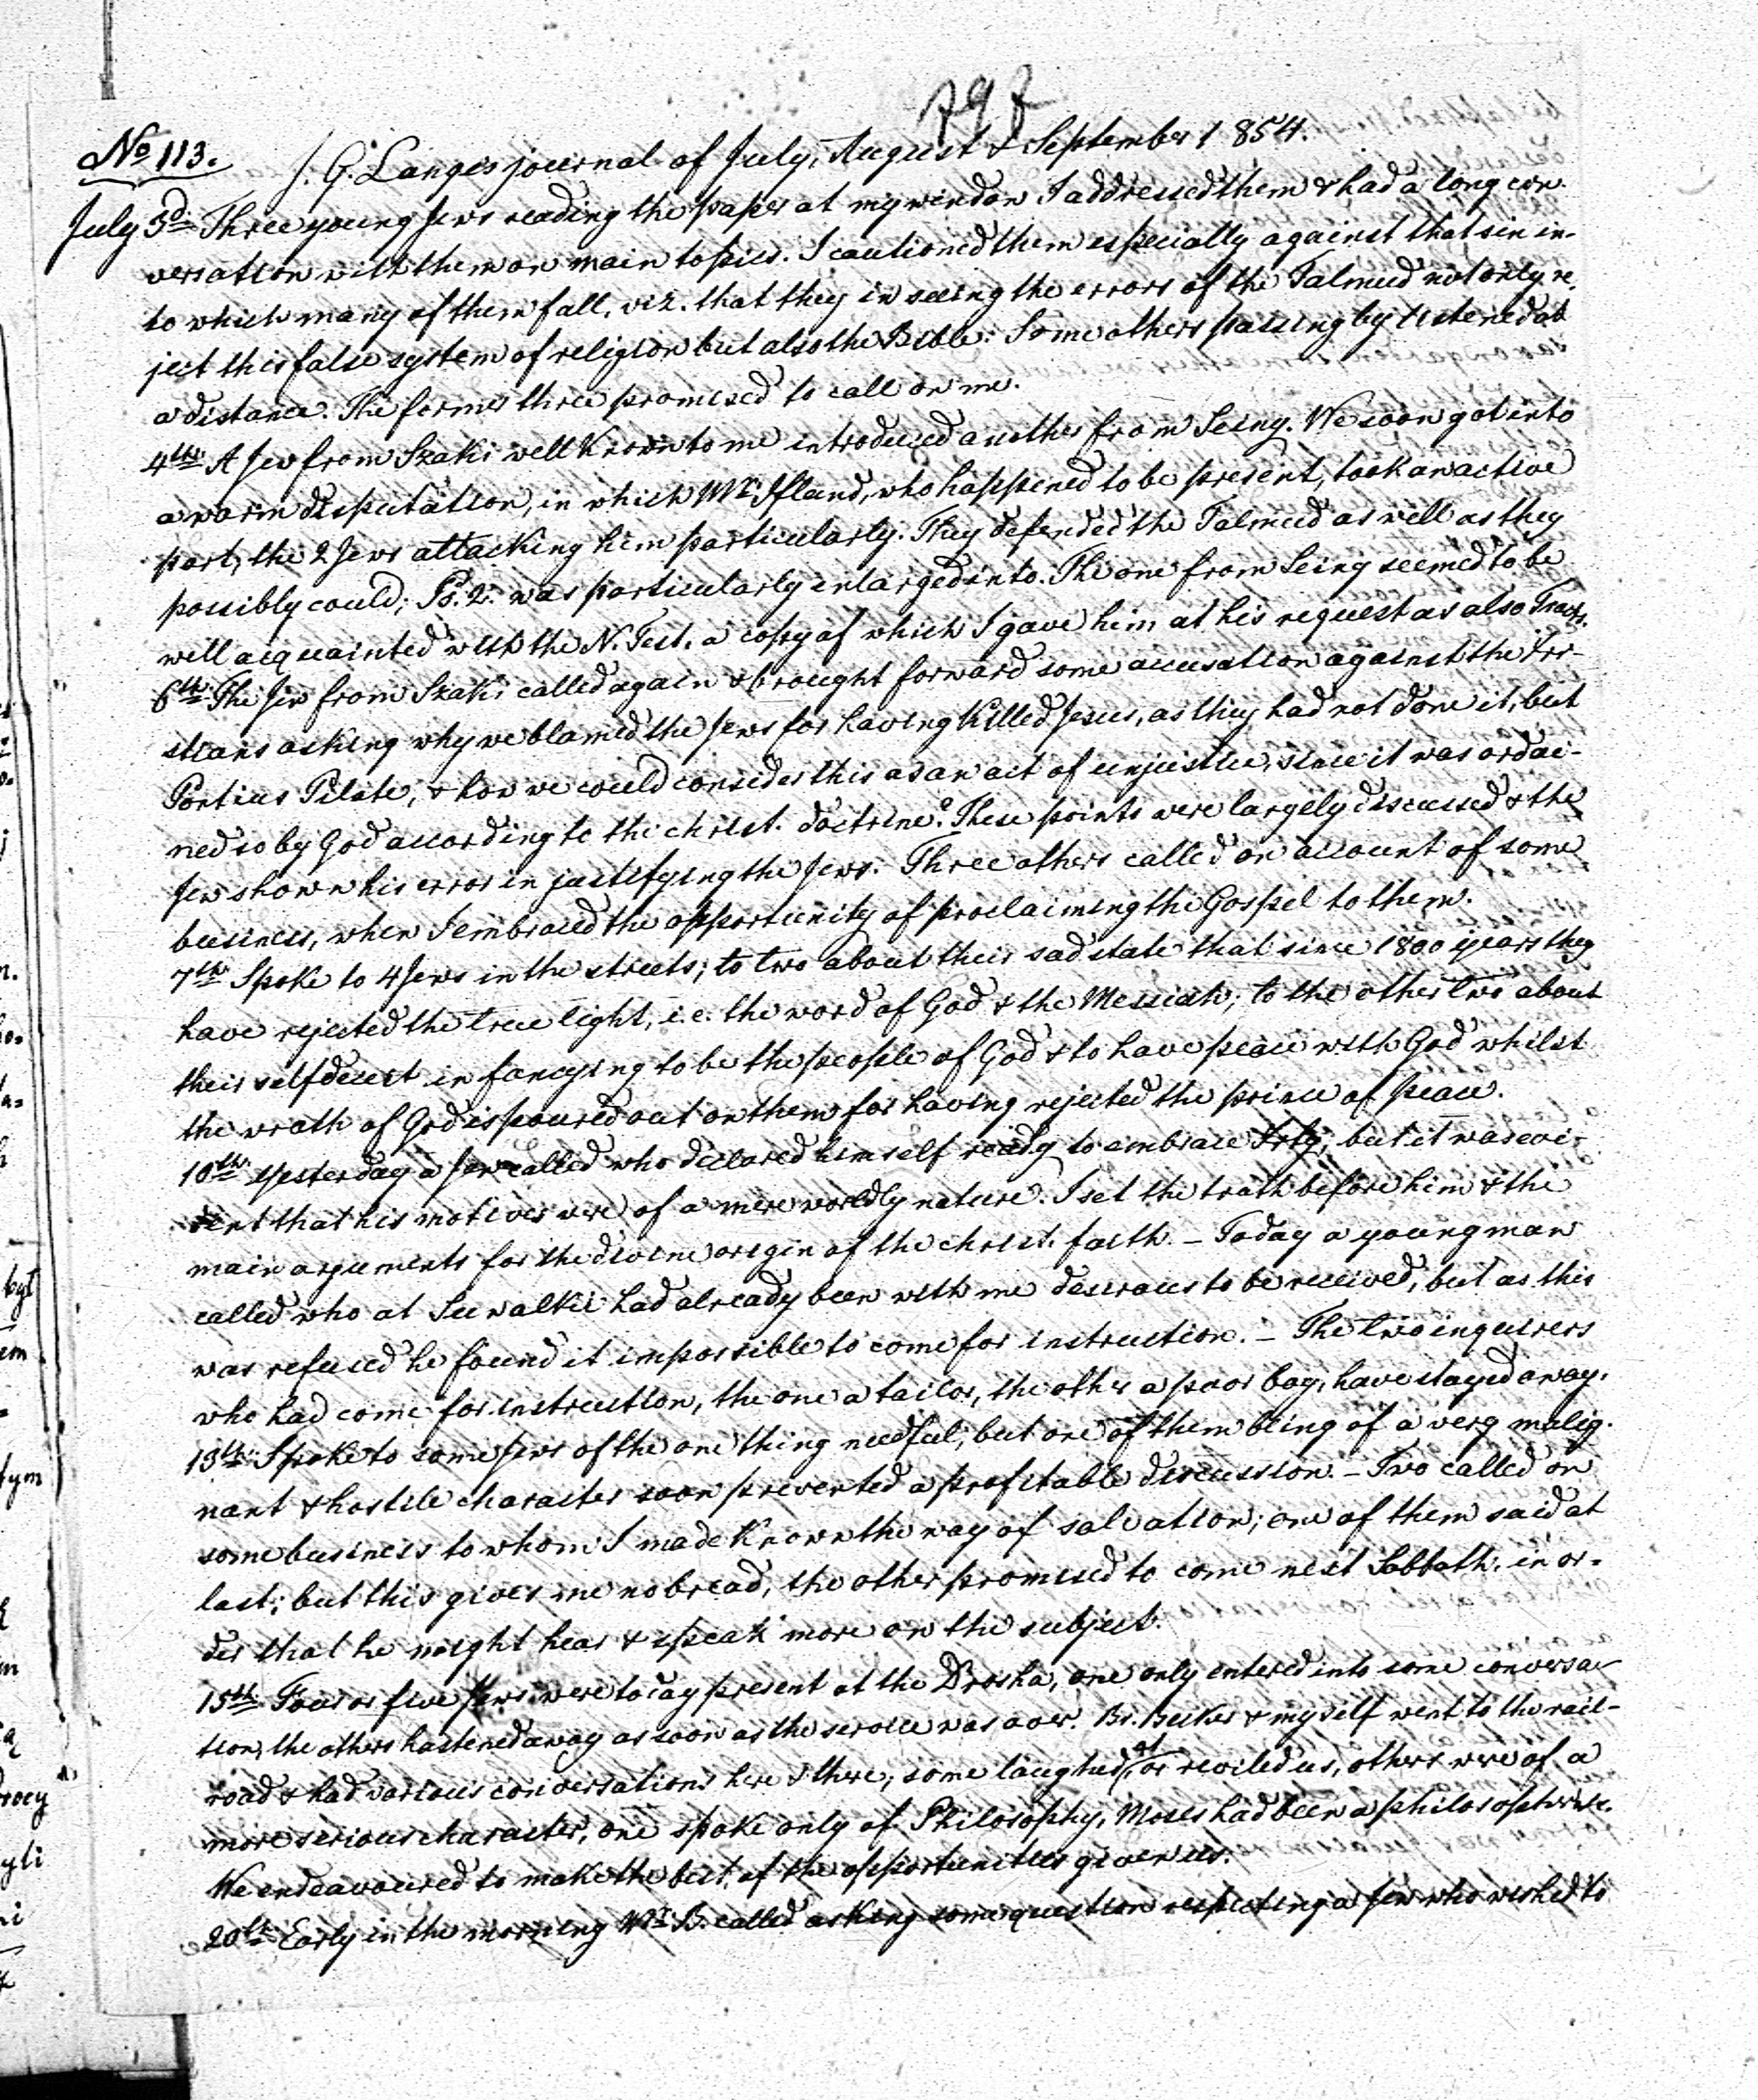 797
No 113. J. G. Lange's journal of July, August & September 1854.
July 3d. Three young Jews reading the paper at my window I addressed them & had a long con-
versation with them on main topics. I cautioned them especially against that sin in-
to which many of them fall, viz. that they in seeing the errors of the Talmud not only re-
ject this false system of religion but also the Bible. Some others passing by listened at
a distance. The former three promised to call on me.
4th. A Jew from Szaki well known to me introduced another from Seiny. We soon got into
a warm disputation, in which Mr. Ifland, who happened to be present, took an active
part, the 2 Jews attacking him particularly. They defended the Talmud as well as they
possibly could; Ps. 2. was particularly enlarged into. The one from Seiny seemed to be
well acquainted with the N. Test. a copy of which I gave him at his request as also Tracts.
6th. The Jew from Szaki called again & brought forward some accusation against the Xri-
stians asking why we blamed the Jews for having killed Jesus, as they had not done it, but
Pontius Pilate, & how we could consider this as an act of unjustice, since it was ordai-
ned so by God according to the christ. doctrine? These points were largely discussed & the
Jew shown his error in justifying the Jews. Three others called on account of some
business, when I embraced the opportunity of proclaiming the Gospel to them.
7th. Spoke to 4 Jews in the streets; to two about their sad state that since 1800 years they
have rejected the true light, i.e. the word of God & the Messiah; to the other two about
their selfdeceit in fancying to be the people of God & to have peace with God whilst
the wrath of God is poured out on them for having rejected the prince of peace.
10th. Yesterday a Jew called who declared himself ready to embrace Xrty, but it was evi-
dent that his motives were of a mere worldly nature. I set the truth before him & the
main arguments for the divine origin of the christ. faith. – Today a young man
called who at Suwalki had already been with me desirous to be received, but as this
was refused he found it impossible to come for instruction. – The two inquirers
who had come for instruction, the one a tailor, the other a poor boy, have stayed away.
13th. Spoke to some Jews of the one thing needful, but one of them being of a very malig-
nant & hostile character soon prevented a profitable discussion. – Two called on
some business to whom I made known the way of salvation; one of them said at
last: but this gives me no bread, the other promised to come next Sabbath, in or-
der that he might hear & speak more on the subject.
15th. Four or five Jews were today present at the Drosha, one only entered into some conversa-
tion, the others hastened away as soon as the service was over. Br. Becker & myself went to the rail-
road & had various conversations here & there; some laughed at or reviled us, others were of a
more serious character, one spoke only of Philosophy, Moses had been a philosopher &c.
We endeavoured to make the best of the opportunities given us.
20th. Early in the morning Mr. B. called asking some question respecting a Jew who wished to